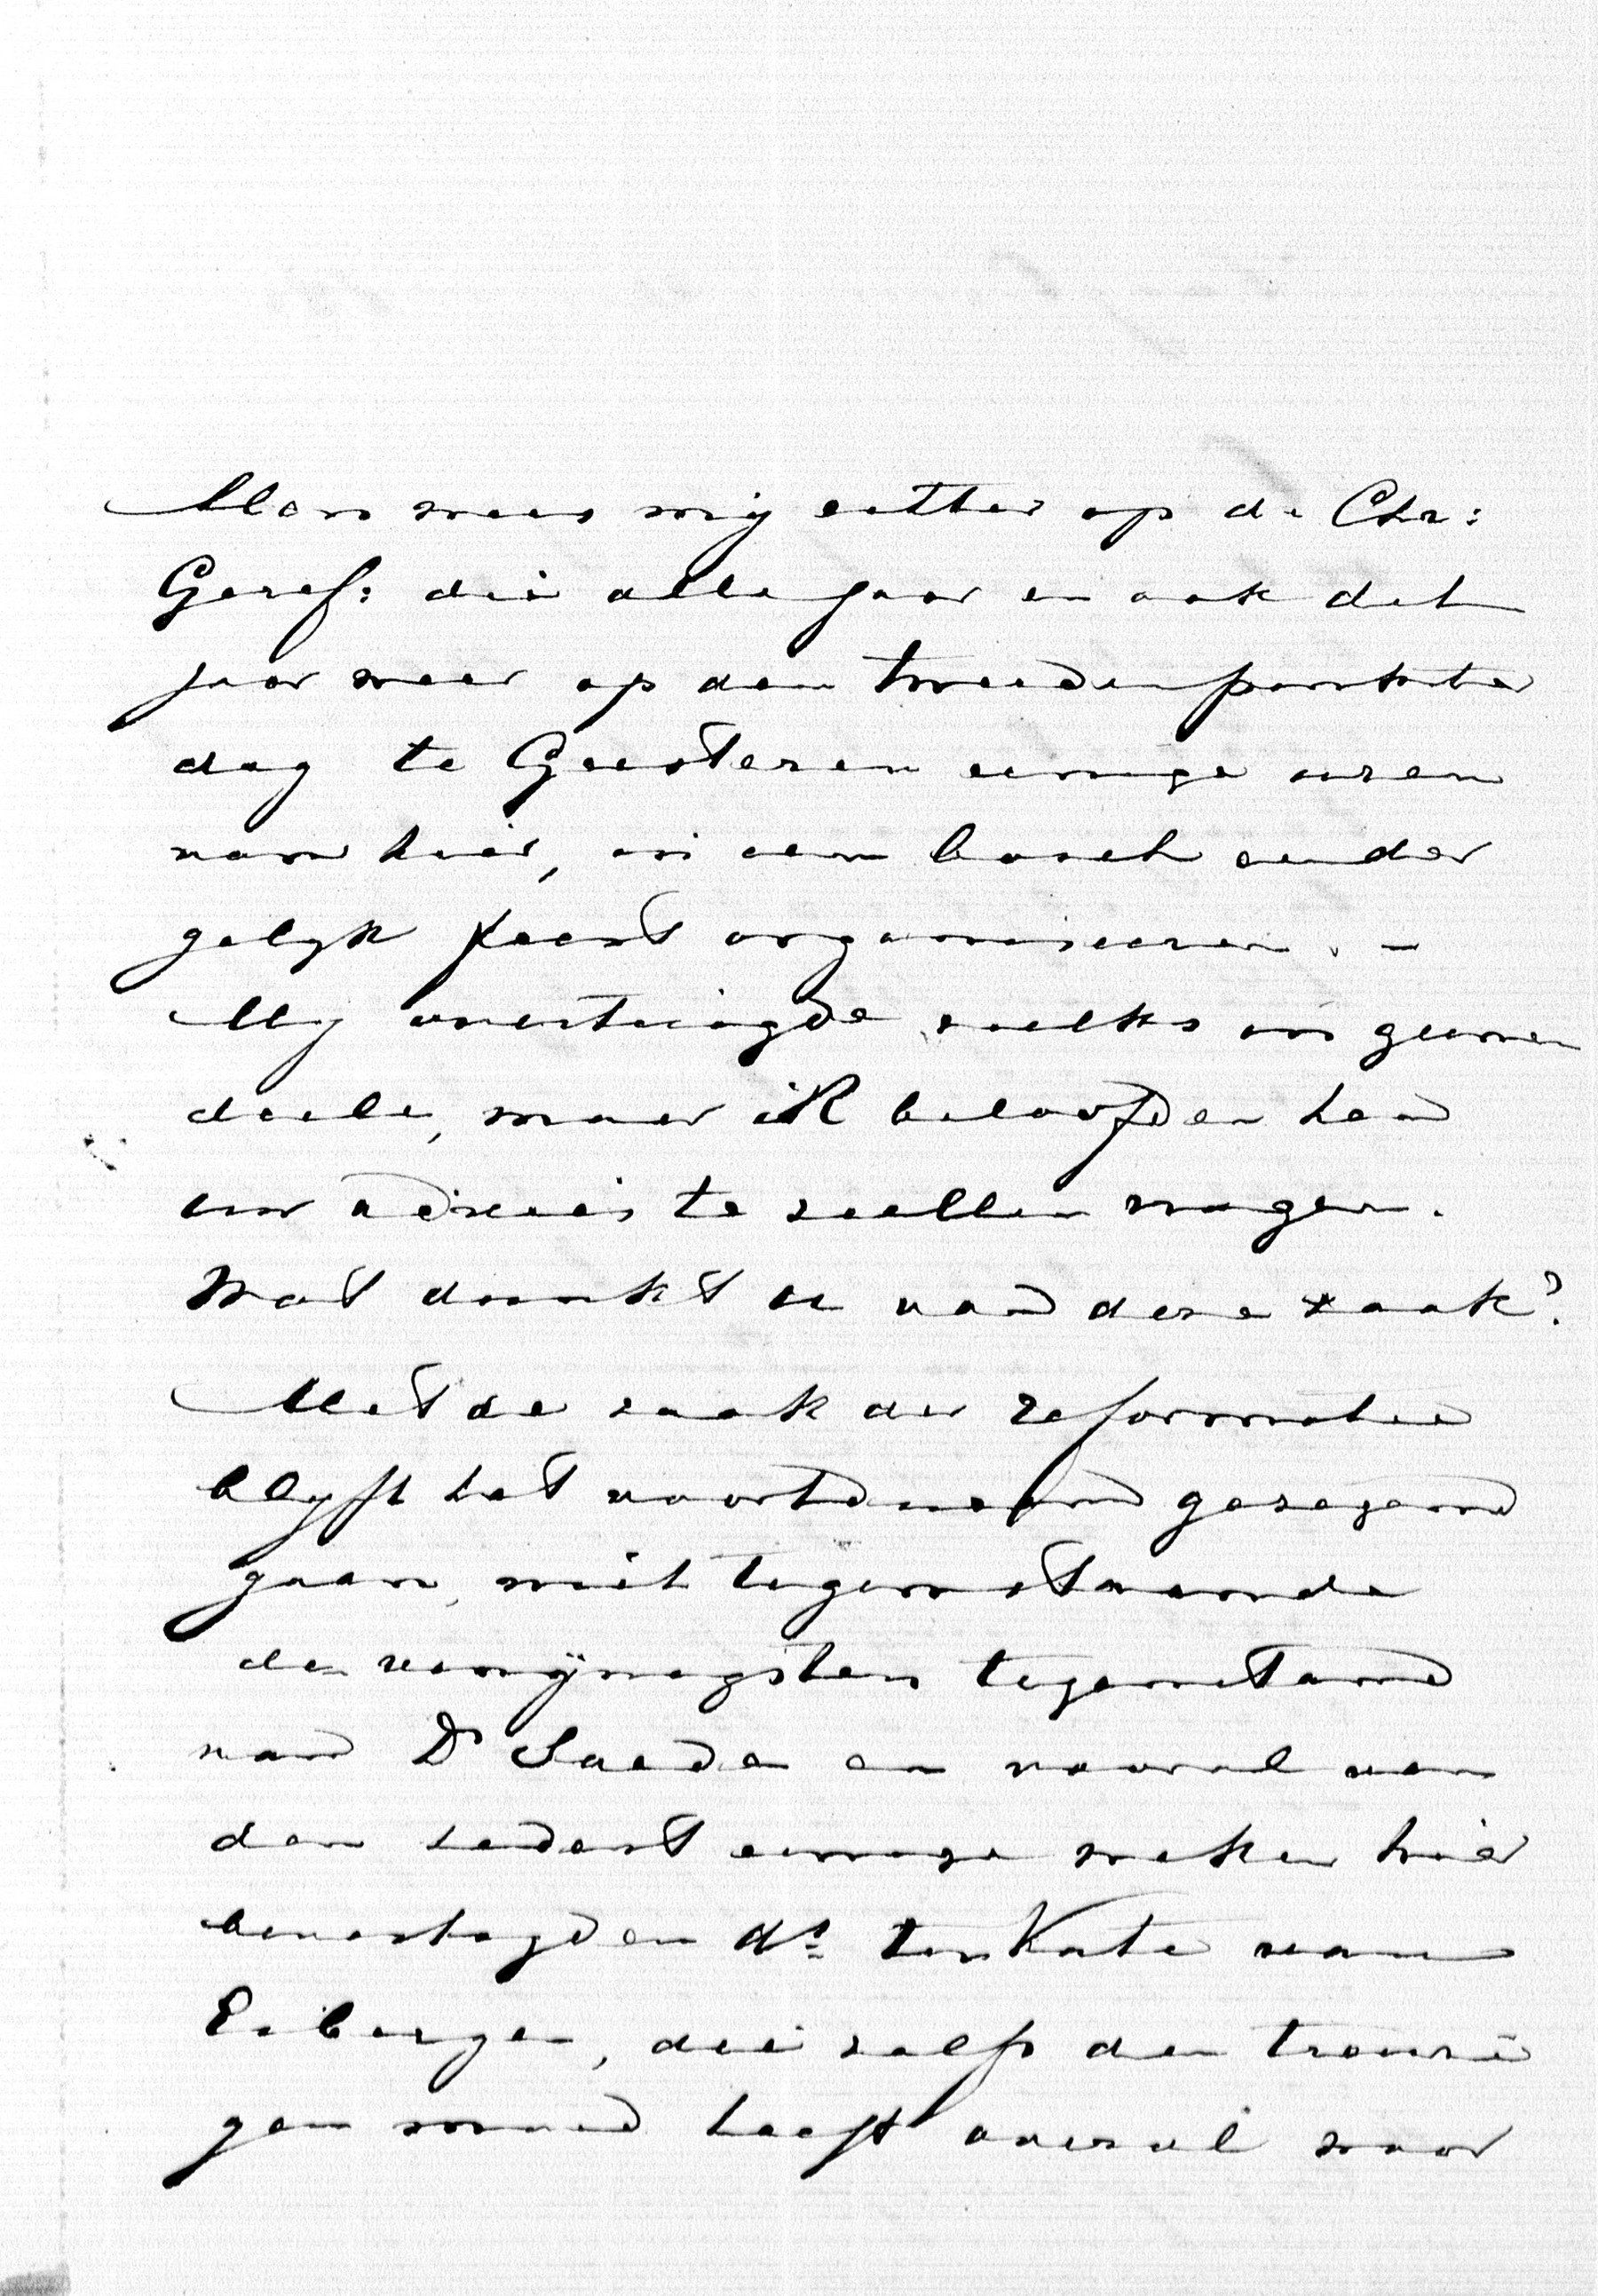 Man wees mij echter op de Chr:
Geref: die alle jaar en ook dit
jaar weer op den tweeden pinkster
dag te Geesteren eenige uren
van hier, in een bosch een der
gelijk feest organiseeren. –
Mij overtuigde zulks in geenen
deele, maar ik beloofde hen
uw advies te zullen vragen.
Wat dunkt u van deze zaak?
Met de zaak der reformatie
blijft het voortdurend gezegend
gaan, niettegenstaande
den venijnigsten tegenstand
van Ds en vooral van
den sedert eenige weken hier
bevestigden ds ten Kate van
Eibergen, die zelfs den treuri
gen moed heeft overal waar